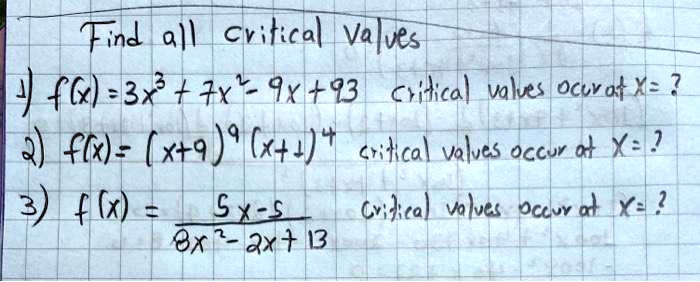 Find all critical values
1) f(x) = 3x³ + 7x² - 9x + 93 critical values occur at x = ?
2) f(x) = (x+9)⁹ (x+1)⁴ critical values occur at x = ?
3) f(x) = 5x-5 / 8x² - 2x + 13 critical values occur at x = ?